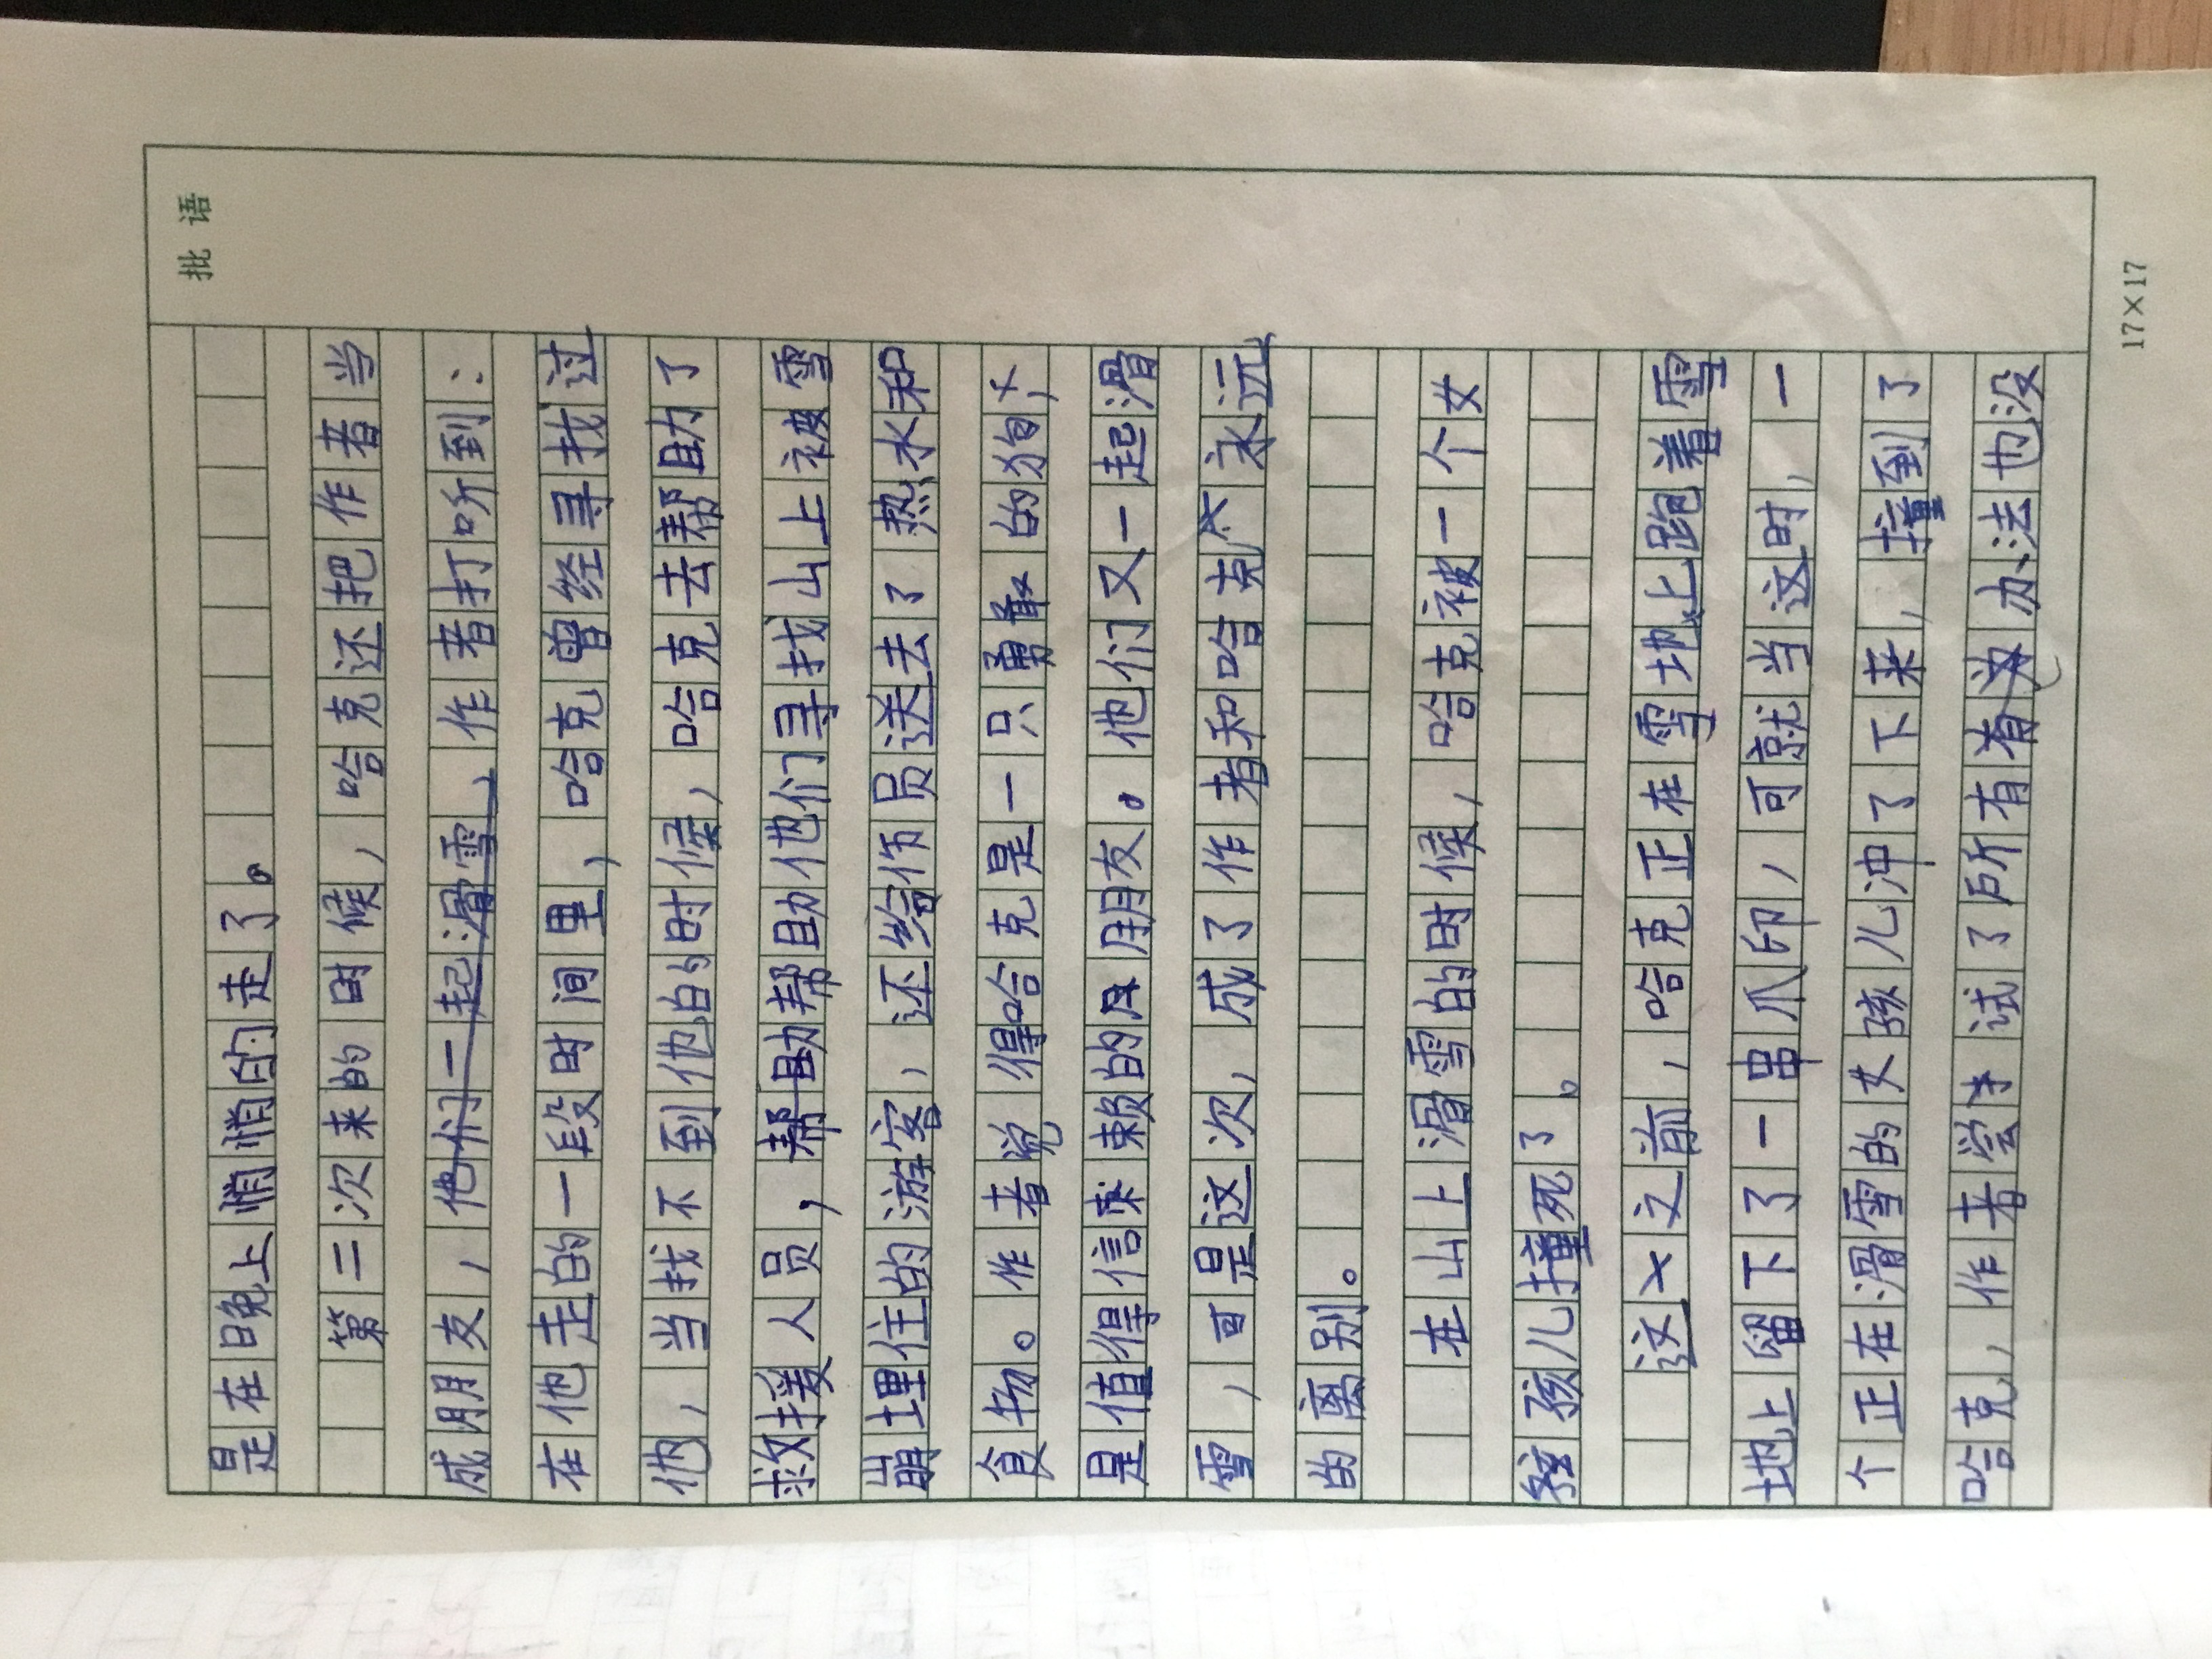 批语
是在晚上悄悄的走了。
第二次来的时候，哈克还把作者当
成朋友，他们一起滑雪，作者打听到：
在他走的一段时间里，哈克曾经寻找过
他，当找不到他的时候，哈克去帮助了
救援人员，帮助帮助他们寻找山上被雪
崩埋住的游客，还给伤员送去了热水和
食物。作者觉得哈克是一只勇敢的狗，
是值得信赖的朋友。他们又一起滑
雪，可是这次，成了作者和哈克永远
的离别。
在山上滑雪的时候，哈克被一个女
孩儿撞死了。
这之前，哈克正在雪地上跑着雪
地上留下了一串爪印，可就当这时，一
个正在滑雪的女孩儿冲了下来，撞到了
哈克，作者尝试了所有办法也没
17×17